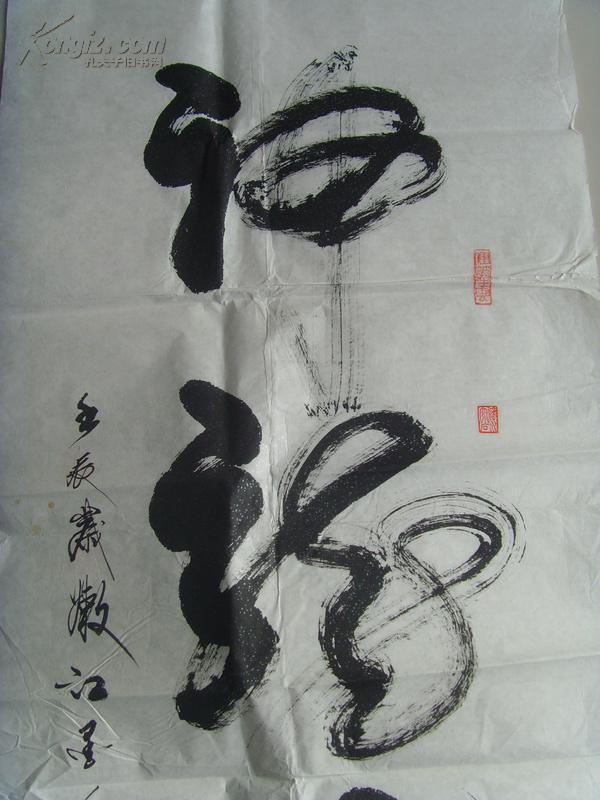 Kongfz.com
孔夫子旧书网
神龍
壬辰歲嫩江墨